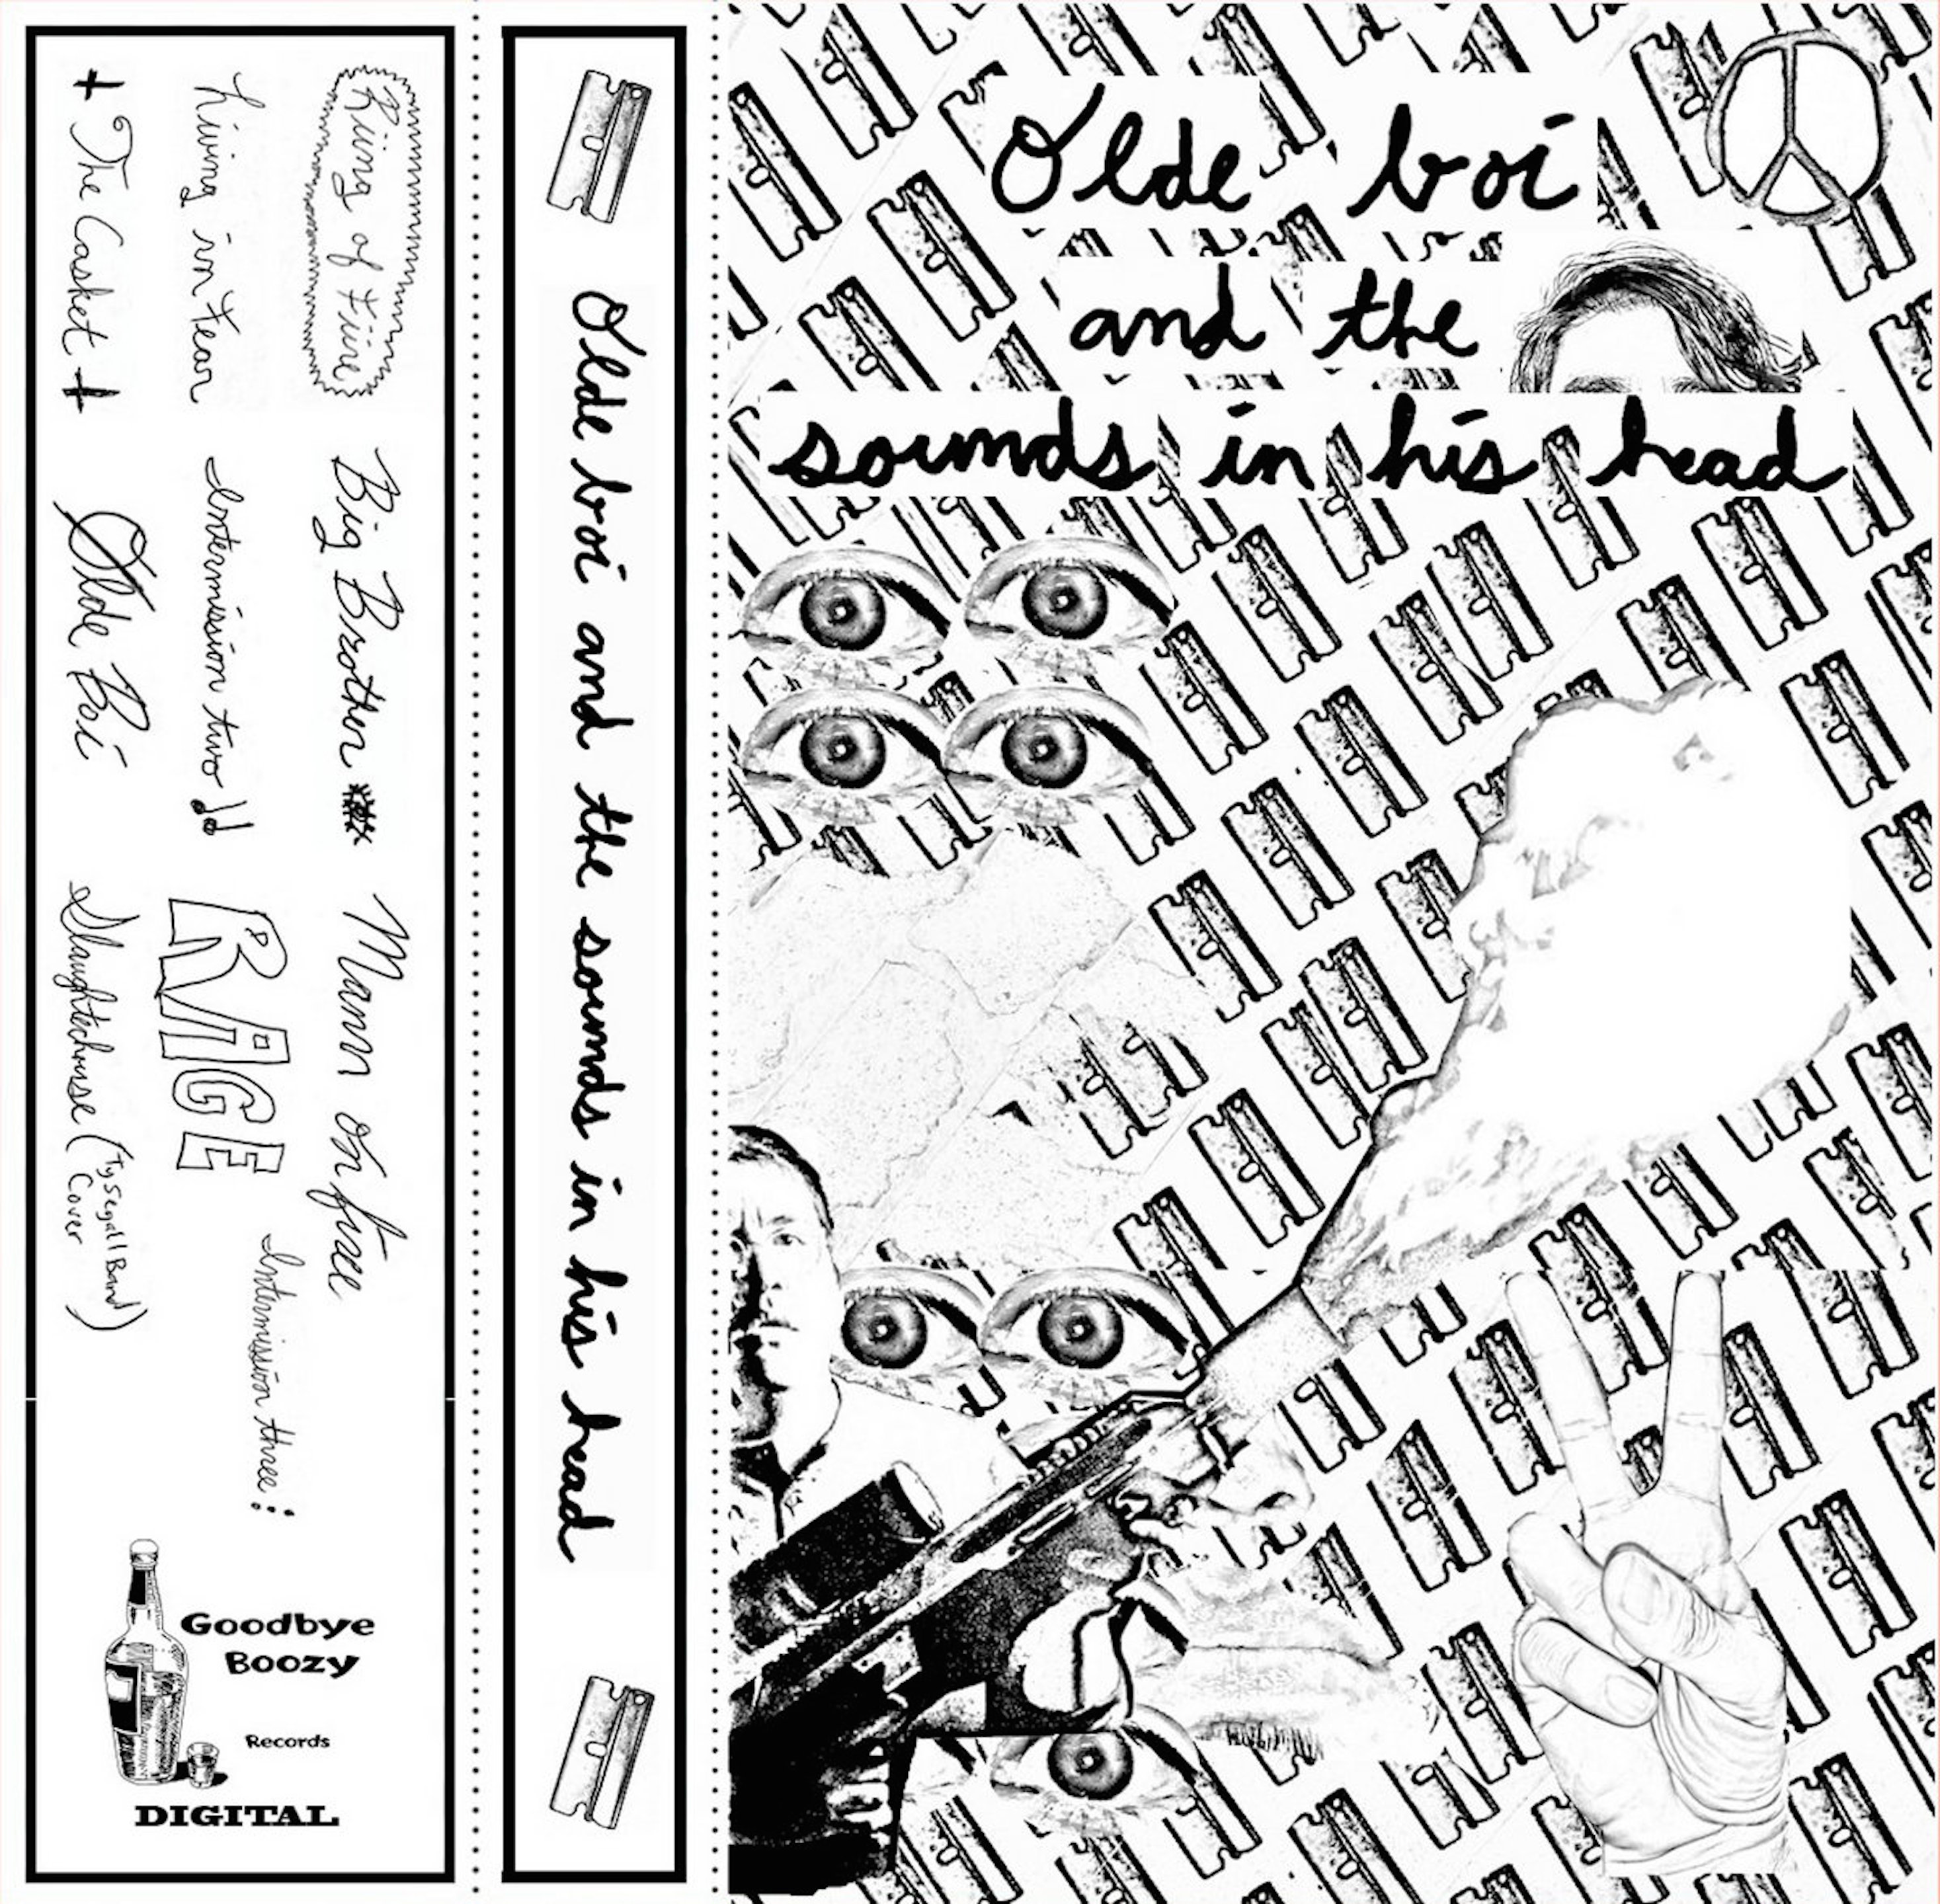 Riing of Fiire
Big Brother
Mann on fire
Living in Fear
Intermission two
RAGE
Intermission three:
The Casket
Olde Boi
Slaughterhouse (Ty Segall Band
Cover)
Goodbye
Boozy
Records
DIGITAL
Olde boi and the sounds in his head
Olde boi
and the
sounds in his head